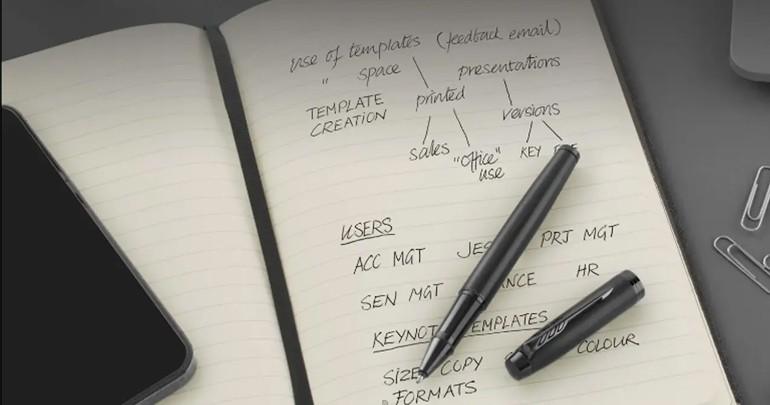 use of templates (feedback email)
" space presentations
TEMPLATE CREATION printed
versions
sales "office" use KEY
USERS
ACC MGT PRJ MGT
SEN MGT HR
KEYNOT EMPLATES
SIZE COPY COLOUR
FORMATS